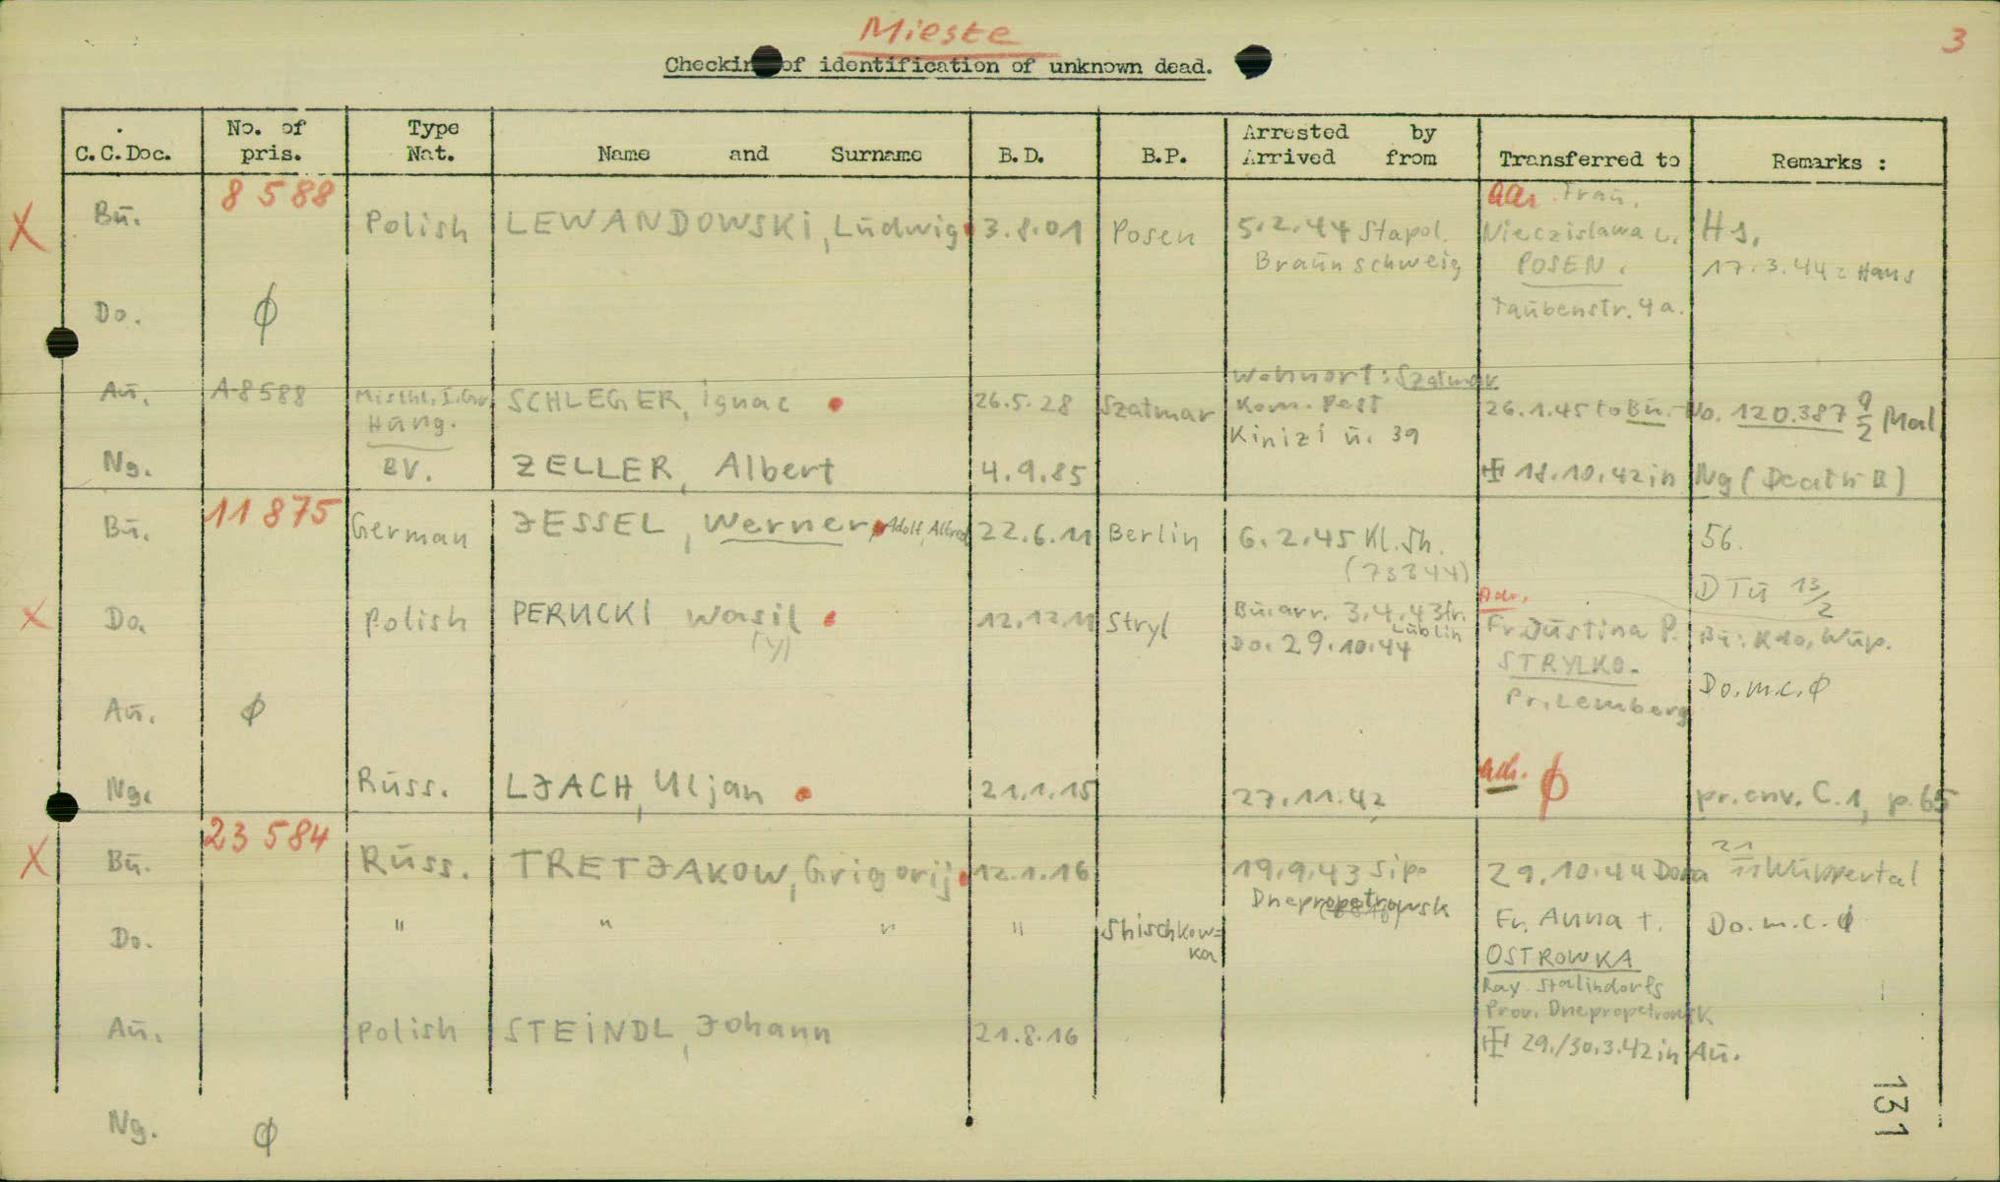 Mieste
3
Checking of identification of unknown dead.
C.C.Doc. No. of pris. Type Nat. Name and Surname B.D. B.P. Arrested by Arrived from Transferred to Remarks :
X Bū. 8588 Polish LEWANDOWSKi, Lūdwig 3.8.01 Posen 5.2.44 Stapol. Braūnschweig
Adr. Fraū.
Nieczislawa L.
POSEN.
Taūbenstr. 4a.
Hs,
17.3.44 z Haus
Do. ϕ
Aū. A-8588 Hūng. SCHLEGER, ignac 26.5.28 Szatmar
Wohnort: Szatmar
Kom. Pest
Kinizi ū. 39
26.1.45 to Bū. No. 120.387 9/2 Mal
Ng. BV. ZELLER, Albert 4.9.85 18.10.42 in Ng (Death B)
Bū. 11875 German JESSEL, Werner, Adolf, Alfred 22.6.11 Berlin 6.2.45 Kl.Sh. 56.
(73344)
DTū 13/2
X Do. Polish PERUCKI Wasil 12.12.11 Stryl
(y)
Bū. arr. 3.4.43 fr. Lūblin
Do. 29.10.44
Adr.
Fr. Jūstina P.
STRYLKO.
Pr. Lemberg
Bū: Kdo, Wūp.
Do.m.c.ϕ
Aū. ϕ
Ng. Rūss. LJACH, Uljan 21.1.15 27.11.42 Adr. ϕ pr.env. C.1, p.65
X Bū. 23584 Rūss. TRETJAKOW, Grigorij 12.1.16 19.9.43 Sipo Dnepropetrowsk 29.10.44 Dora 21/11 Wūppertal
Do. " " " " Shischkow=
ka
Fr. Anna T.
OSTROWKA
Ray. Stalindorfs
Prov. Dnepropetrowsk
Do.m.c.ϕ
Aū. Polish STEiNDL, Johann 21.8.16 29./30.3.42 in Aū.
Ng. ϕ
131